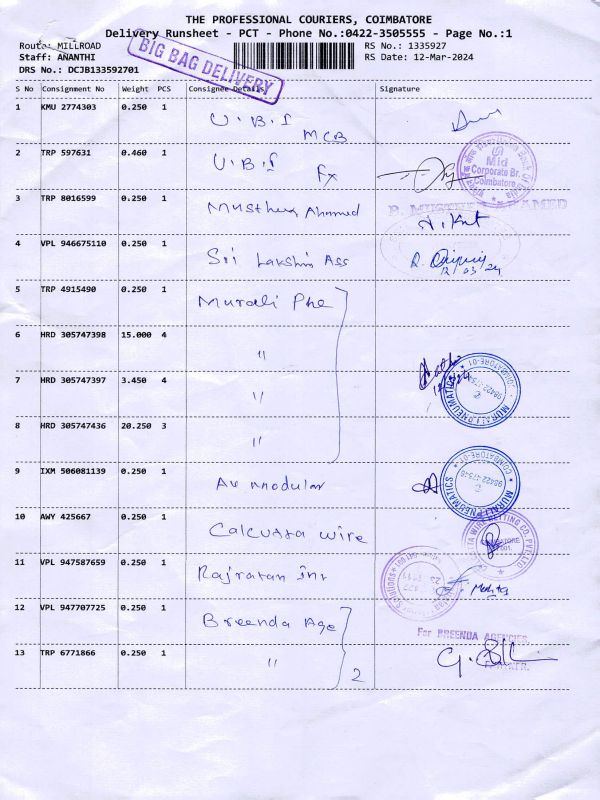 THE PROFESSIONAL COURIERS, COIMBATORE
Delivery Runsheet - PCT - Phone No.:0422-3505555 - Page No.:1
Route: MILLROAD RS No.: 1335927
Staff: ANANTHI RS Date: 12-Mar-2024
DRS No.: DCJB133592701
BIG BAG DELIVERY
S No Consignment No Weight PCS Consignee Details Signature
1 KMU 2774303 0.250 1 U.B.I MCB
2 TRP 597631 0.460 1 U.B.I Fx
Mid Corporate Br. Coimbatore
3 TRP 8016599 0.250 1 Musthaq Ahamed
4 VPL 946675110 0.250 1 Sri Lakshmi Ass
12/03/24
5 TRP 4915490 0.250 1 Murali Phe
6 HRD 305747398 15.000 4 "
7 HRD 305747397 3.450 4 "
MURALI PNEUMATICS COIMBATORE-01
8 HRD 305747436 20.250 3 "
9 IXM 506081139 0.250 1 AV Modular
MURALI PNEUMATICS COIMBATORE-01
10 AWY 425667 0.250 1 Calcutta wire
11 VPL 947587659 0.250 1 Rajratan Inr
12 VPL 947707725 0.250 1 Breenda Age
For BREENDA AGENCIES
13 TRP 6771866 0.250 1 " 2